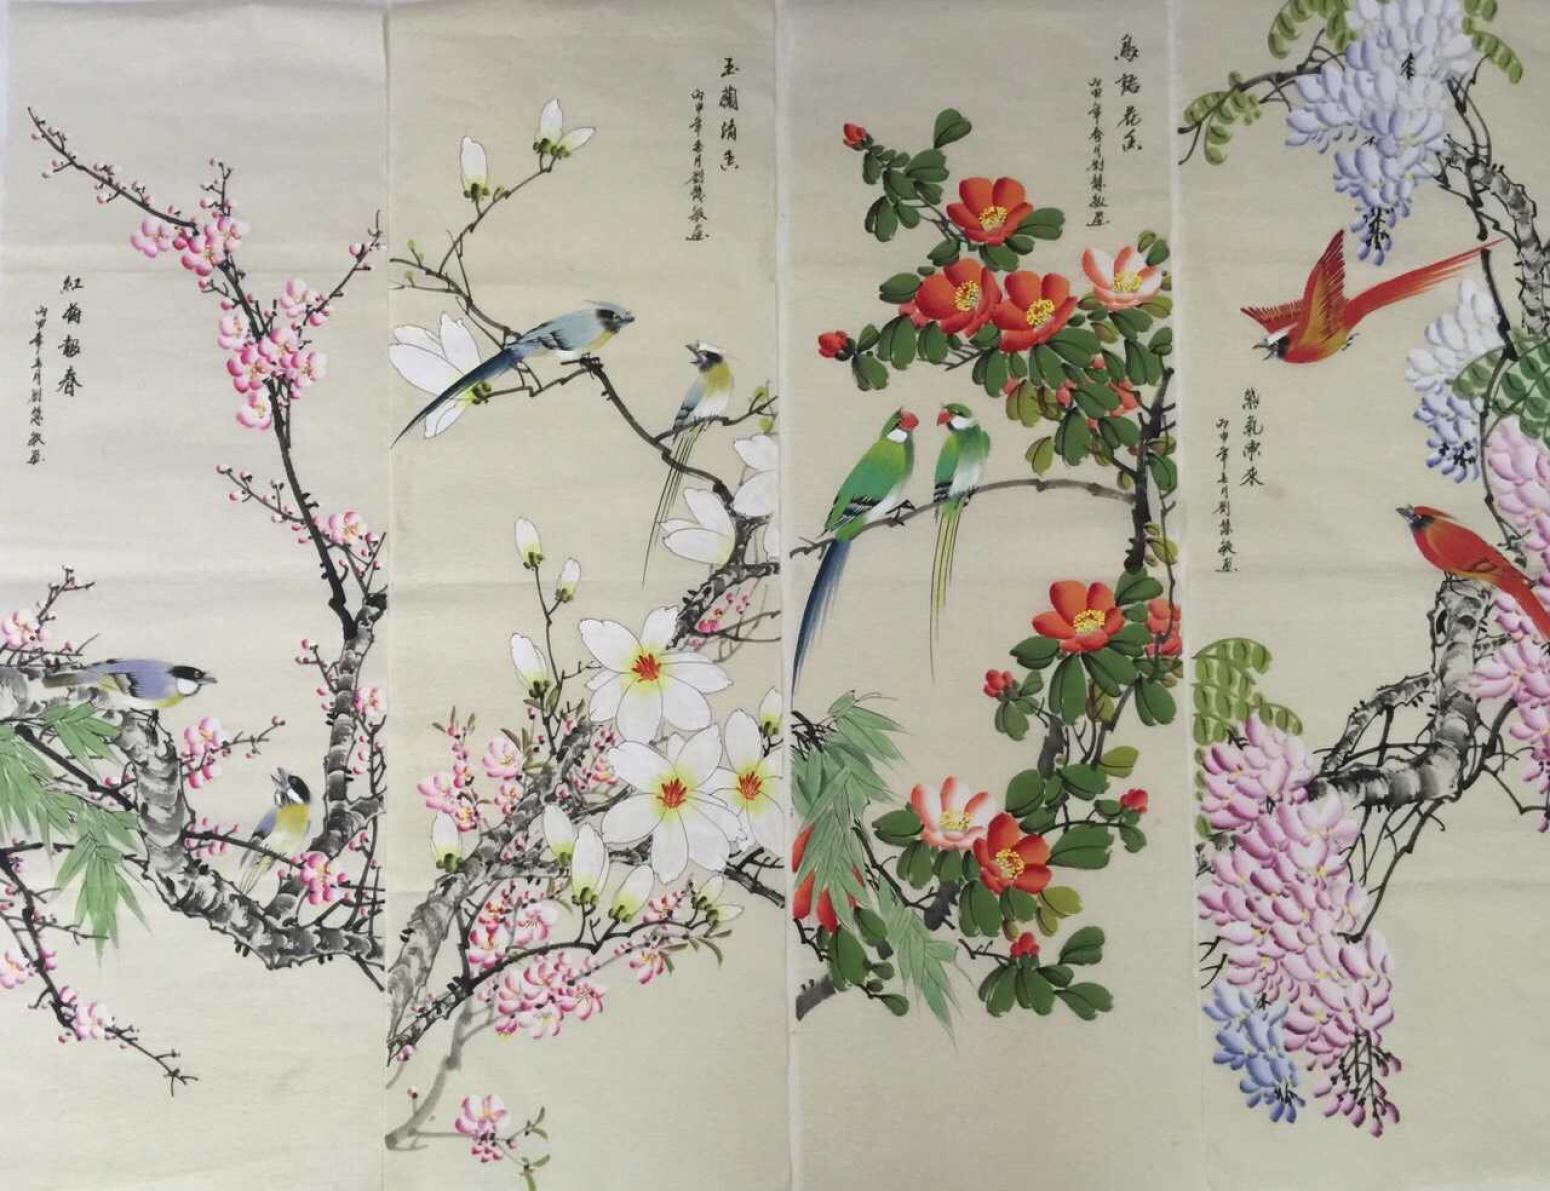 紅梅報春
丙申年春月劉慧敏畫
玉蘭清香
丙申年春月劉慧敏畫
鳥語花香
丙申年春月劉慧敏畫
紫氣東來
丙申年春月劉慧敏畫